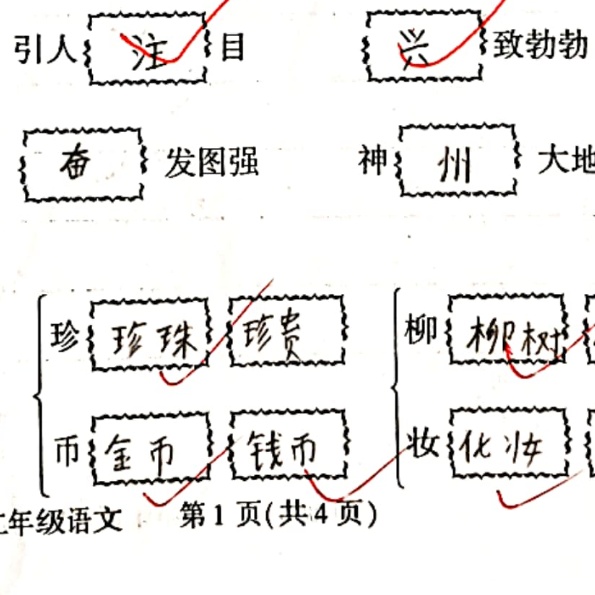 引人注目 兴致勃勃
奋发图强 神州大地
珍 珍珠 珍贵 柳 柳树
币 金币 钱币 妆 化妆
年级语文 第1页(共4页)